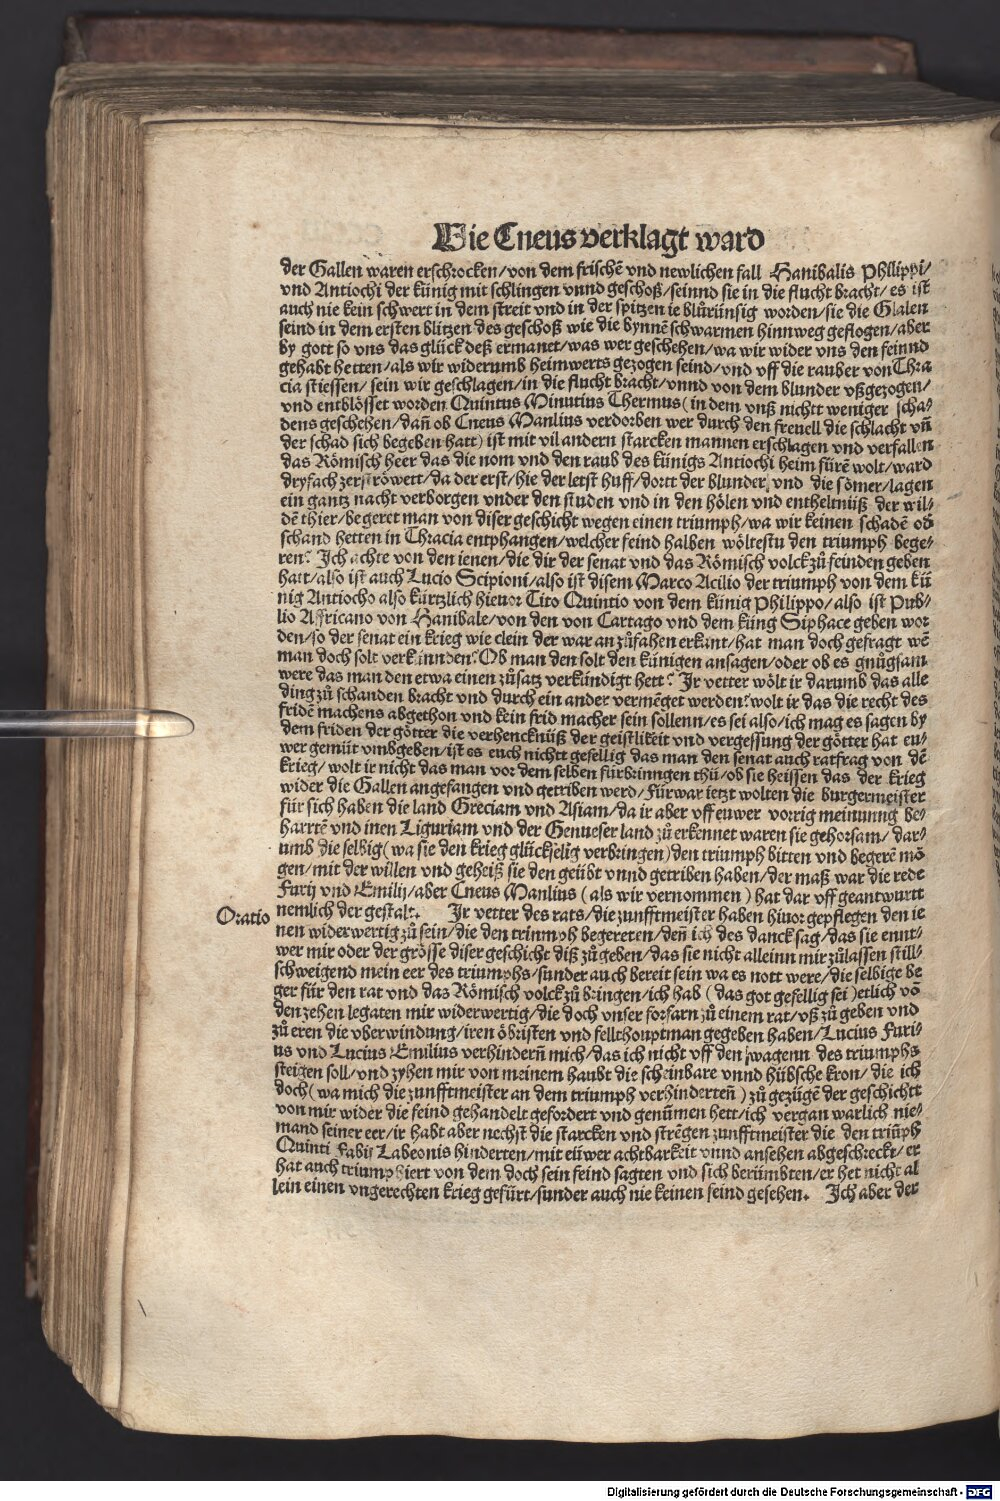 Wie Cneus verklagt ward
der Gallen waren erschrocken/von dem frischē vnd newlichen fall Hanibalis Philippi/
vnd Antiochi der künig mit schlingen vnnd geschoß/seinnd sie in die flucht bracht/es ist
auch nie kein schwert in dem streit vnd in der spitzen ie blůrünsig worden/sie die Glalen
seind in dem ersten blitzen des geschoß wie die bynnē schwarmen hinnweg geflogen/aber
by gott so vns das glück deß ermanet/was wer geschehen/wa wir wider vns den feinnd
gehabt hetten/als wir widerumb heimwerts gezogen seind/vnd vff die rauber von Thra
cia stiessen/sein wir geschlagen/in die flucht bracht/vnnd von dem blunder vßgezogen/
vnd entblösset worden Quintus Minutius Thermus(in dem vnß nichtt weniger scha⸗
dens geschehen/dañ ob Cneus Manlius verdorben wer durch den freuell die schlacht vñ
der schad sich begeben hatt) ist mit vil andern starcken mannen erschlagen vnd verfallen
das Römisch heer das die nom vnd den raub des künigs Antiochi heim fürē wolt/ward
dryfach zerströwett/da der erst/hie der letst huff/dortt der blunder vnd die sömer/lagen
ein gantz nacht verborgen vnder den studen vnd in den hölen vnd entheltnüß der wil⸗
dē thier/begeret man von diser geschicht wegen einen triumph/wa wir keinen schadē od
schand hetten in Thracia entphangen/welcher feind halben wöltestu den triumph bege⸗
ren? Ich achte von den ienen/die dir der senat vnd das Römisch volck zů feinden geben
hatt/also ist auch Lucio Scipioni/also ist disem Marco Acilio der triumph von dem kü
nig Antiocho also kürtzlich hieuor Tito Quintio von dem künig Philippo/also ist Pub⸗
lio Affricano von Hanibale/von den von Cartago vnd dem küng Siphace geben wor
den/so der senat ein krieg wie clein der war an zůfahen erkant/hat man doch gefragt wē
man doch solt verkünnden? Ob man den solt den künigen ansagen/oder ob es gnůgsam
were das man den etwa einen zůsatz verkündigt hett? Ir vetter wölt ir darumb das alle
ding zů schanden bracht vnd durch ein ander vermēget werden? wolt ir das die recht des
fridē machens abgethon vnd kein frid macher sein sollenn/es sei also/ich mag es sagen by
dem friden der götter die verhencknüß der geistlikeit vnd vergessung der götter hat eu⸗
wer gemüt vmbgeben/ist es euch nichtt gefellig das man den senat auch ratfrag von dē
krieg/wolt ir nicht das man vor dem selben fürbrinngen thü/ob sie heissen das der krieg
wider die Gallen angefangen vnd getriben werd/fürwar ietzt wolten die burgermeister
für sich haben die land Greciam vnd Asiam/da ir aber vff euwer vorrig meinunng be⸗
harrtē vnd inen Liguriam vnd der Genueser land zů erkennet waren sie gehorsam/dar⸗
umb die selbig(wa sie den krieg glückselig verbringen)den triumph bitten vnd begerē mö
gen/mit der willen vnd geheiß sie den geübt vnnd getriben haben/der maß war die rede
Furij vnd Emilij/aber Cneus Manlius (als wir vernommen) hat dar vff geantwurtt
Oratio nemlich der gestalt. Ir vetter des rats/die zunfftmeister haben hiuor gepflegen den ie
nen widerwertig zů sein/die den triumph begereten/deñ ich des danck sag/das sie enntt⸗
wer mir oder der grösse diser geschicht diß zů geben/das sie nicht alleinn mir zůlassen still⸗
schweigend mein eer des triumphs/sunder auch bereit sein wa es nott were/die selbige be
ger für den rat vnd das Römisch volck zů bringen/ich hab (das got gefellig sei)etlich vō
den zehen legaten mir widerwertig/die doch vnser forfarn zů einem rat/vß zů geben vnd
zů eren die vberwindung/iren öbristen vnd felltthouptman gegeben haben/Lucius Furi⸗
us vnd Lucius Emilius verhinderñ mich/das ich nicht vff den wagenn des triumphs
steigen soll/vnd zyhen mir von meinem haubt die scheinbare vnnd hübsche kron/die ich
doch(wa mich die zunfftmeister an dem triumph verhinderteñ) zů gezügē der geschichtt
von mir wider die feind gehandelt gefordert vnd genūmen hett/ich vergan warlich nie⸗
mand seiner eer/ir habt aber nechst die starcken vnd strēgen zunfftmeister die den triūph
Quinti Fabij Labeonis hinderten/mit eüwer achtbarkeit vnnd ansehen abgeschreckt/er
hat auch triumphiert von dem doch sein feind sagten vnd sich berümbten/er het nicht al
lein einen vngerechten krieg gefürt/sunder auch nie keinen feind gesehen. Ich aber der
Digitalisierung gefördert durch die Deutsche Forschungsgemeinschaft - DFG